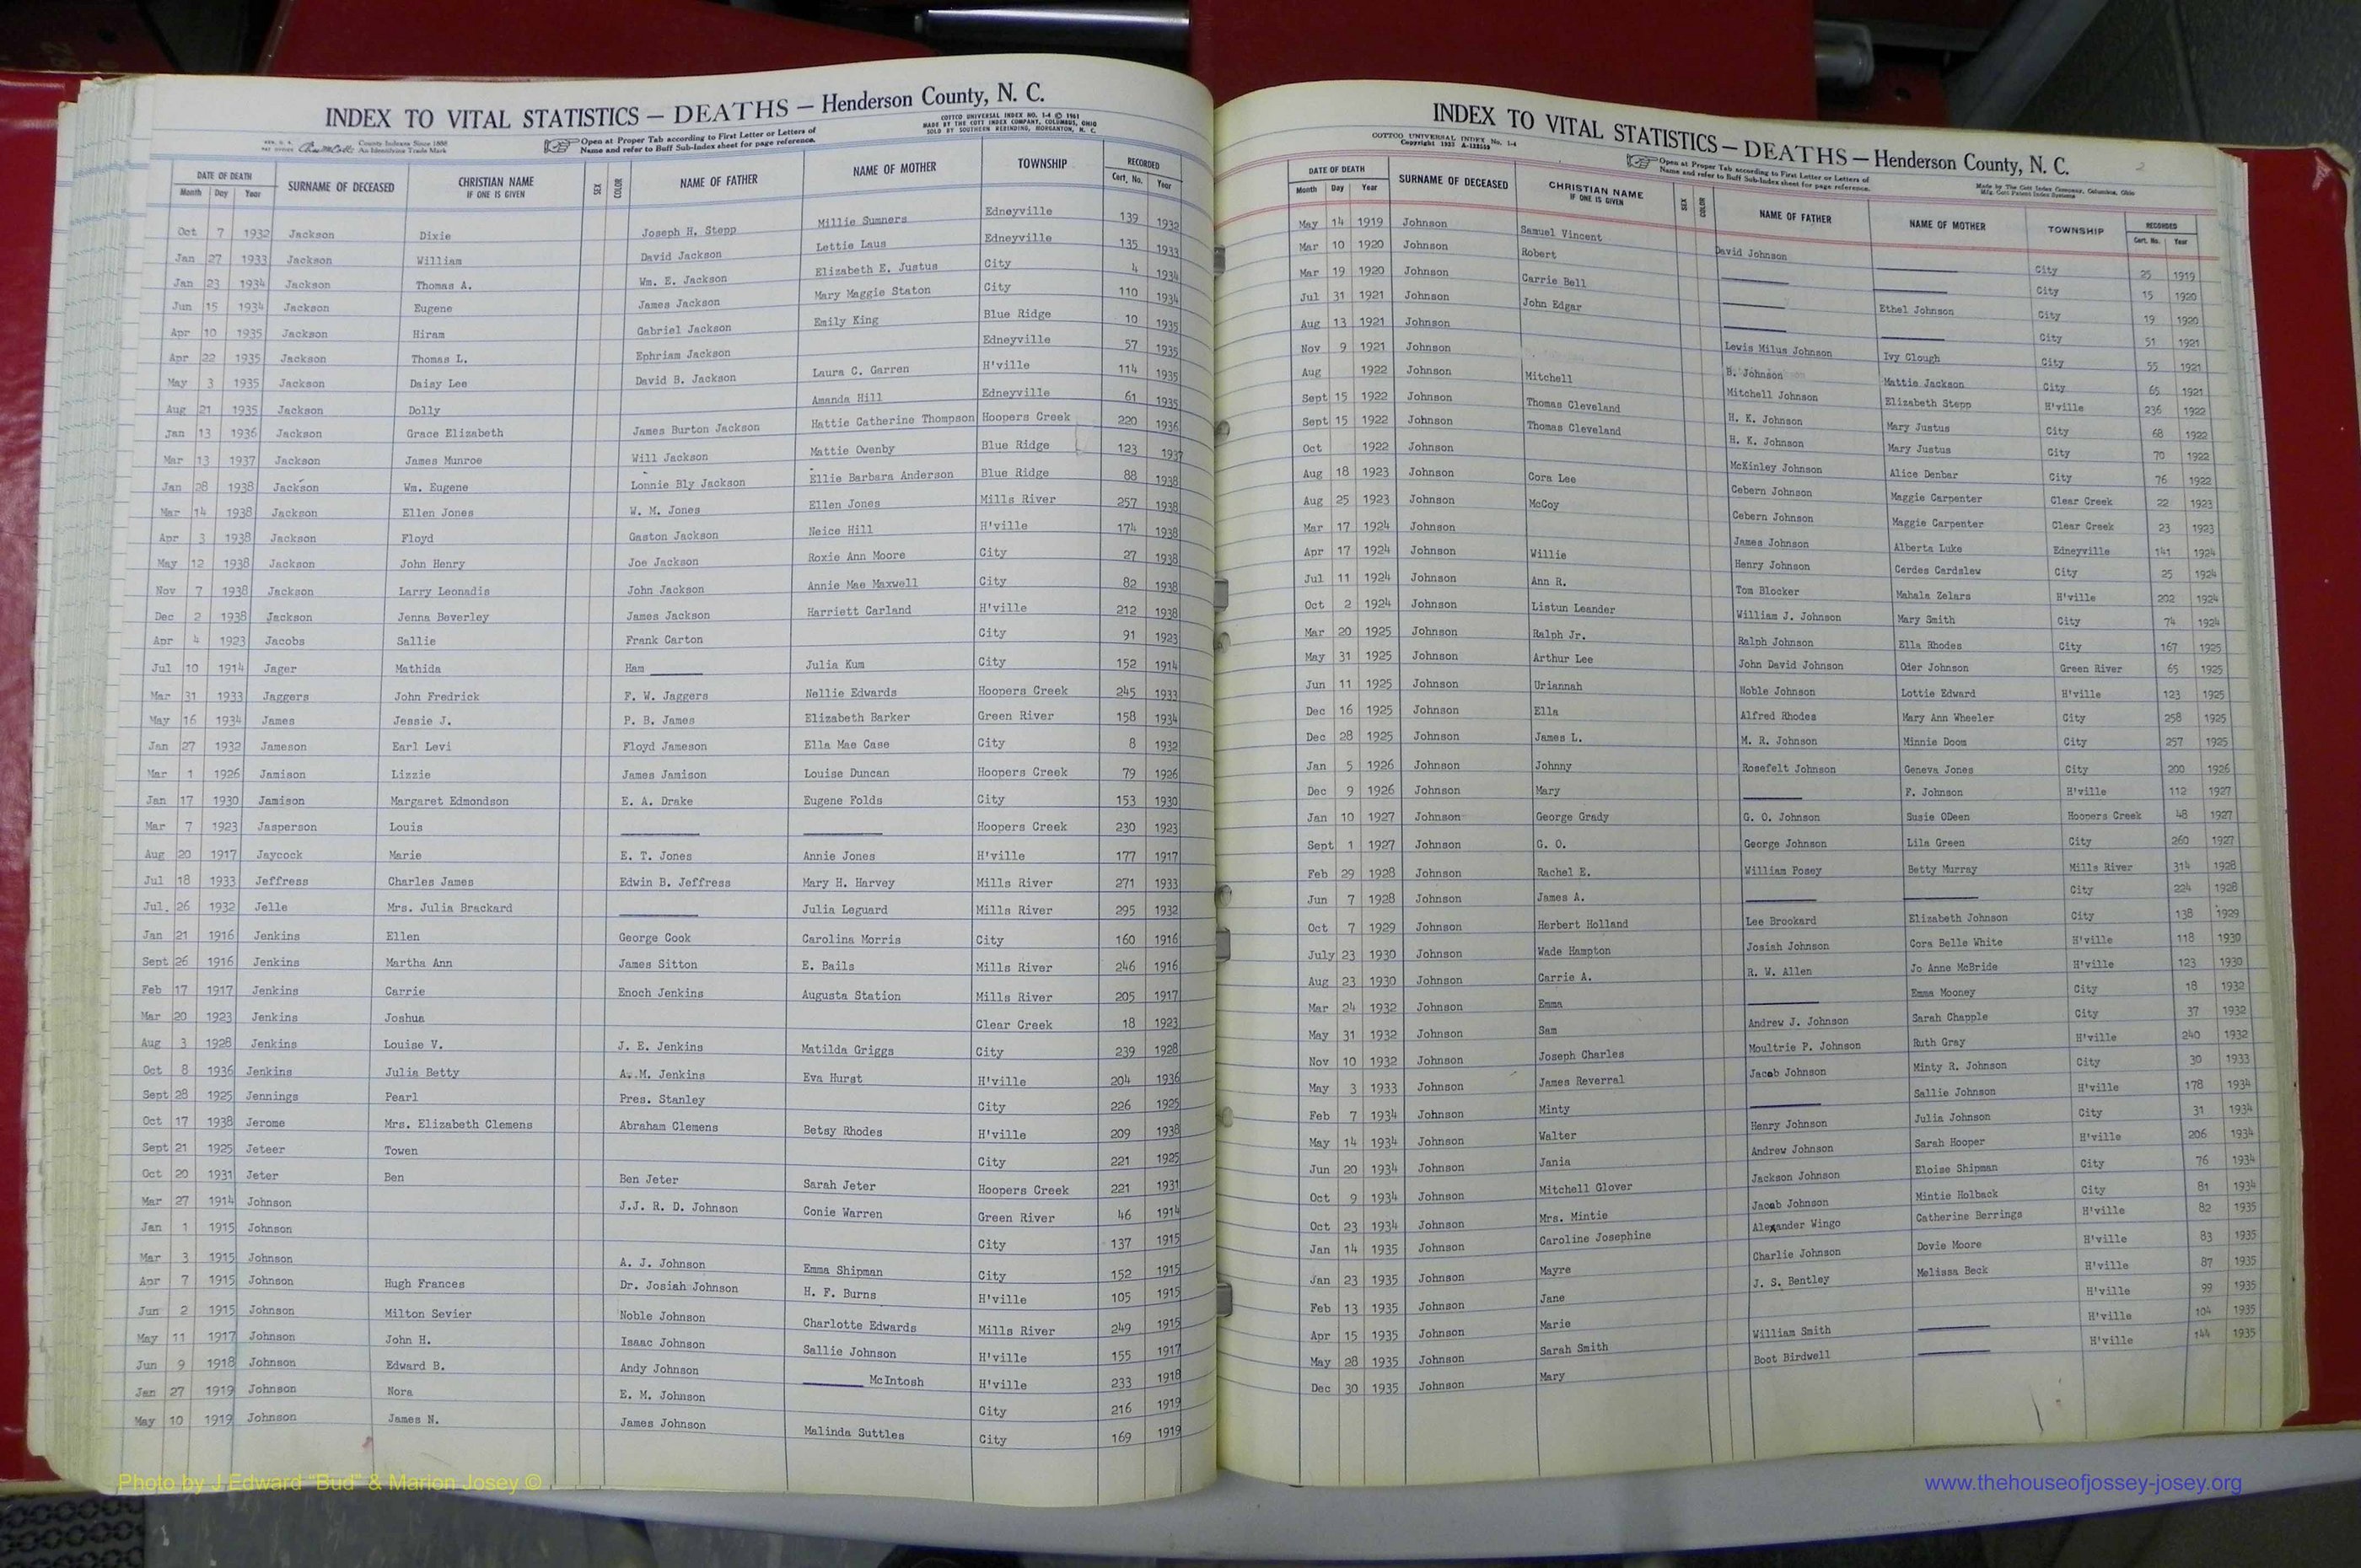 INDEX TO VITAL STATISTICS — DEATHS — Henderson County, N. C.
COTTCO UNIVERSAL INDEX NO. 1-4 © 1961
MADE BY THE COTT INDEX COMPANY, COLUMBUS, OHIO
SOLD BY SOUTHERN REBINDING, MORGANTON, N. C.
County Indexes Since 1888
An Identifying Trade Mark
Open at Proper Tab according to First Letter or Letters of
Name and refer to Buff Sub-Index sheet for page reference.
DATE OF DEATH SURNAME OF DECEASED CHRISTIAN NAME IF ONE IS GIVEN SEX COLOR NAME OF FATHER NAME OF MOTHER TOWNSHIP RECORDED
Month Day Year Cert. No. Year
Oct 7 1932 Jackson Dixie Joseph H. Stepp Millie Sumners Edneyville 139 1932
Jan 27 1933 Jackson William David Jackson Lettie Laus Edneyville 135 1933
Jan 23 1934 Jackson Thomas A. Wm. E. Jackson Elizabeth E. Justus City 4 1934
Jun 15 1934 Jackson Eugene James Jackson Mary Maggie Staton City 110 1934
Apr 10 1935 Jackson Hiram Gabriel Jackson Emily King Blue Ridge 10 1935
Apr 22 1935 Jackson Thomas L. Ephriam Jackson Edneyville 57 1935
May 3 1935 Jackson Daisy Lee David B. Jackson Laura C. Garren H'ville 114 1935
Aug 21 1935 Jackson Dolly Amanda Hill Edneyville 61 1935
Jan 13 1936 Jackson Grace Elizabeth James Burton Jackson Hattie Catherine Thompson Hoopers Creek 220 1936
Mar 13 1937 Jackson James Munroe Will Jackson Mattie Owenby Blue Ridge 123 1937
Jan 28 1938 Jackson Wm. Eugene Lonnie Bly Jackson Ellie Barbara Anderson Blue Ridge 88 1938
Mar 14 1938 Jackson Ellen Jones W. M. Jones Ellen Jones Mills River 257 1938
Apr 3 1938 Jackson Floyd Gaston Jackson Neice Hill H'ville 174 1938
May 12 1938 Jackson John Henry Joe Jackson Roxie Ann Moore City 27 1938
Nov 7 1938 Jackson Larry Leonadis John Jackson Annie Mae Maxwell City 82 1938
Dec 2 1938 Jackson Jenna Beverley James Jackson Harriett Garland H'ville 212 1938
Apr 4 1923 Jacobs Sallie Frank Carton City 91 1923
Jul 10 1914 Jager Mathida Ham ____ Julia Kum City 152 1914
Mar 31 1933 Jaggers John Fredrick F. W. Jaggers Nellie Edwards Hoopers Creek 245 1933
May 16 1934 James Jessie J. P. B. James Elizabeth Barker Green River 158 1934
Jan 27 1932 Jameson Earl Levi Floyd Jameson Ella Mae Case City 8 1932
Mar 1 1926 Jamison Lizzie James Jamison Louise Duncan Hoopers Creek 79 1926
Jan 17 1930 Jamison Margaret Edmondson E. A. Drake Eugene Folds City 153 1930
Mar 7 1923 Jasperson Louis ____ ____ Hoopers Creek 230 1923
Aug 20 1917 Jaycock Marie E. T. Jones Annie Jones H'ville 177 1917
Jul 18 1933 Jeffress Charles James Edwin B. Jeffress Mary H. Harvey Mills River 271 1933
Jul. 26 1932 Jelle Mrs. Julia Brackard ____ Julia Leguard Mills River 295 1932
Jan 21 1916 Jenkins Ellen George Cook Carolina Morris City 160 1916
Sept 26 1916 Jenkins Martha Ann James Sitton E. Bails Mills River 246 1916
Feb 17 1917 Jenkins Carrie Enoch Jenkins Augusta Station Mills River 205 1917
Mar 20 1923 Jenkins Joshua Clear Creek 18 1923
Aug 3 1928 Jenkins Louise V. J. E. Jenkins Matilda Griggs City 239 1928
Oct 8 1936 Jenkins Julia Betty A. M. Jenkins Eva Hurst H'ville 204 1936
Sept 28 1925 Jennings Pearl Pres. Stanley City 226 1925
Oct 17 1938 Jerome Mrs. Elizabeth Clemens Abraham Clemens Betsy Rhodes H'ville 209 1938
Sept 21 1925 Jeteer Towen City 221 1925
Oct 20 1931 Jeter Ben Ben Jeter Sarah Jeter Hoopers Creek 221 1931
Mar 27 1914 Johnson J.J. R. D. Johnson Conie Warren Green River 46 1914
Jan 1 1915 Johnson City 137 1915
Mar 3 1915 Johnson A. J. Johnson Emma Shipman City 152 1915
Apr 7 1915 Johnson Hugh Frances Dr. Josiah Johnson H. F. Burns H'ville 105 1915
Jun 2 1915 Johnson Milton Sevier Noble Johnson Charlotte Edwards Mills River 249 1915
May 11 1917 Johnson John H. Isaac Johnson Sallie Johnson H'ville 155 1917
Jun 9 1918 Johnson Edward B. Andy Johnson ____ McIntosh H'ville 233 1918
Jan 27 1919 Johnson Nora E. M. Johnson City 216 1919
May 10 1919 Johnson James N. James Johnson Malinda Suttles City 169 1919
INDEX TO VITAL STATISTICS — DEATHS — Henderson County, N. C.
2
COTTCO UNIVERSAL INDEX No. 1-4
Open at Proper Tab according to First Letter or Letters of
Name and refer to Buff Sub-Index sheet for page reference.
Made by The Cott Index Company, Columbus, Ohio
DATE OF DEATH SURNAME OF DECEASED CHRISTIAN NAME IF ONE IS GIVEN SEX COLOR NAME OF FATHER NAME OF MOTHER TOWNSHIP RECORDED
Month Day Year Cert. No. Year
May 14 1919 Johnson Samuel Vincent David Johnson ____ City 25 1919
Mar 10 1920 Johnson Robert ____ ____ City 15 1920
Mar 19 1920 Johnson Carrie Bell ____ Ethel Johnson City 19 1920
Jul 31 1921 Johnson John Edgar ____ ____ City 51 1921
Aug 13 1921 Johnson Lewis Milus Johnson Ivy Clough City 55 1921
Nov 9 1921 Johnson B. Johnson Mattie Jackson City 65 1921
Aug 1922 Johnson Mitchell Mitchell Johnson Elizabeth Stepp H'ville 236 1922
Sept 15 1922 Johnson Thomas Cleveland H. K. Johnson Mary Justus City 68 1922
Sept 15 1922 Johnson Thomas Cleveland H. K. Johnson Mary Justus City 70 1922
Oct 1922 Johnson McKinley Johnson Alice Denbar City 76 1922
Aug 18 1923 Johnson Cora Lee Cebern Johnson Maggie Carpenter Clear Creek 22 1923
Aug 25 1923 Johnson McCoy Cebern Johnson Maggie Carpenter Clear Creek 23 1923
Mar 17 1924 Johnson James Johnson Alberta Luke Edneyville 141 1924
Apr 17 1924 Johnson Willie Henry Johnson Cerdes Cardslew City 25 1924
Jul 11 1924 Johnson Ann R. Tom Blocker Mahala Zelars H'ville 202 1924
Oct 2 1924 Johnson Listun Leander William J. Johnson Mary Smith City 74 1924
Mar 20 1925 Johnson Ralph Jr. Ralph Johnson Ella Rhodes City 167 1925
May 31 1925 Johnson Arthur Lee John David Johnson Oder Johnson Green River 65 1925
Jun 11 1925 Johnson Uriannah Noble Johnson Lottie Edward H'ville 123 1925
Dec 16 1925 Johnson Ella Alfred Rhodes Mary Ann Wheeler City 258 1925
Dec 28 1925 Johnson James L. M. R. Johnson Minnie Doom City 257 1925
Jan 5 1926 Johnson Johnny Rosefelt Johnson Geneva Jones City 200 1926
Dec 9 1926 Johnson Mary ____ F. Johnson H'ville 112 1927
Jan 10 1927 Johnson George Grady G. O. Johnson Susie ODeen Hoopers Creek 48 1927
Sept 1 1927 Johnson G. O. George Johnson Lila Green City 260 1927
Feb 29 1928 Johnson Rachel E. William Posey Betty Murray Mills River 314 1928
Jun 7 1928 Johnson James A. ____ ____ City 224 1928
Oct 7 1929 Johnson Herbert Holland Lee Brookard Elizabeth Johnson City 138 1929
July 23 1930 Johnson Wade Hampton Josiah Johnson Cora Belle White H'ville 118 1930
Aug 23 1930 Johnson Carrie A. R. W. Allen Jo Anne McBride H'ville 123 1930
Mar 24 1932 Johnson Emma ____ Emma Mooney City 18 1932
May 31 1932 Johnson Sam Andrew J. Johnson Sarah Chapple City 37 1932
Nov 10 1932 Johnson Joseph Charles Moultrie P. Johnson Ruth Gray H'ville 240 1932
May 3 1933 Johnson James Reverral Jacob Johnson Minty R. Johnson City 30 1933
Feb 7 1934 Johnson Minty ____ Sallie Johnson H'ville 178 1934
May 14 1934 Johnson Walter Henry Johnson Julia Johnson City 31 1934
Jun 20 1934 Johnson Jania Andrew Johnson Sarah Hooper H'ville 206 1934
Oct 9 1934 Johnson Mitchell Glover Jackson Johnson Eloise Shipman City 76 1934
Oct 23 1934 Johnson Mrs. Mintie Jacob Johnson Mintie Holback City 81 1934
Jan 14 1935 Johnson Caroline Josephine Alexander Wingo Catherine Berrings H'ville 82 1935
Jan 23 1935 Johnson Mayre Charlie Johnson Dovie Moore H'ville 83 1935
Feb 13 1935 Johnson Jane J. S. Bentley Melissa Beck H'ville 87 1935
Apr 15 1935 Johnson Marie H'ville 99 1935
May 28 1935 Johnson Sarah Smith William Smith ____ H'ville 104 1935
Dec 30 1935 Johnson Mary Boot Birdwell ____ H'ville 144 1935
Photo by J Edward “Bud” & Marion Josey ©
www.thehouseofjossey-josey.org